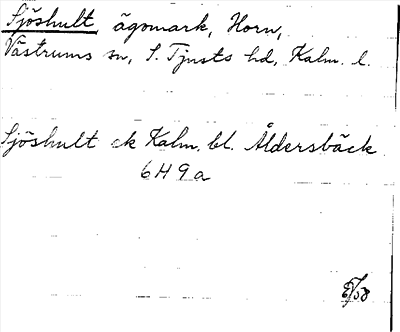 Sjöshult ägomark, Horn,
Västrums sn, S. Tjusts hd, Kalm. l.
Sjöshult ek Kalm. bl. Åldersbäck
6H9a